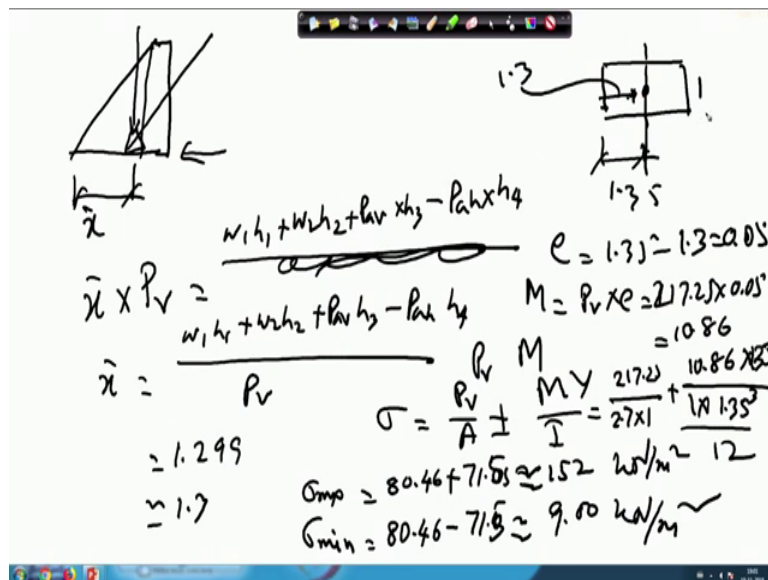 1.3
1
1.35
x̄
w₁h₁ + w₂h₂ + Pav × h₃ − Pah × h₄
x̄ × Pv =
e = 1.35 − 1.3 = 0.05
M = Pv × e = 217.25 × 0.05
= 10.86
w₁h₁ + w₂h₂ + Pav h₃ − Pah h₄
x̄ =
Pv
Pv M
σ = Pv/A ± MY/I = 217.25/2.7×1 +
1 × 1.35³
12
= 1.299
≃ 1.3
= 80.46 + 71.5 ≃ 152 kN/m²
σmin = 80.46 − 71.5 ≃ 9.00 kN/m²